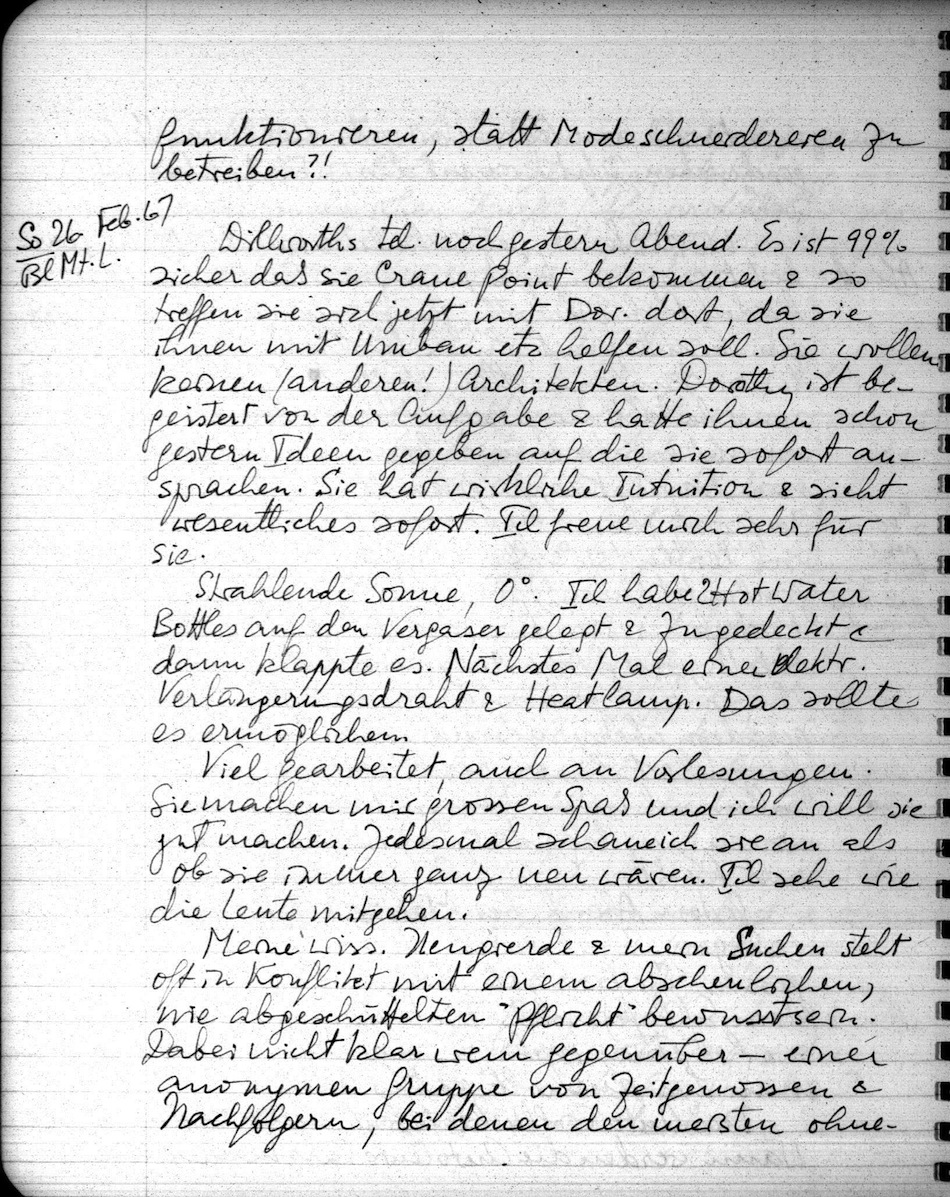 funktionieren, statt Modeschneidereien zu
betreiben?!
So 26. Feb. 67
Bl Mt. L.
Dillworths tel. noch gestern Abend. Es ist 99%
sicher das sie Crane Point bekommen & so
treffen sie sich jetzt mit Dor. dort, da sie
ihnen mit Umbau etc helfen soll. Sie wollen
keinen (anderen!) Architekten. Dorothy ist be-
geistert von der Aufgabe & hatte ihnen schon
gestern Ideen gegeben auf die sie sofort an-
sprachen. Sie hat wirkliche Intuition & sieht
wesentliches sofort. Ich freue mich sehr für
sie.
Strahlende Sonne, 0°. Ich habe 2 Hot Water
Bottles auf den Vergaser gelegt & zugedeckt &
dann klappte es. Nächstes Mal einen Elektr.
Verlängerungsdraht & Heatlamp. Das sollte
es ermöglichen
Viel gearbeitet, auch an Vorlesungen.
Sie machen mir grossen Spas und ich will sie
gut machen. Jedesmal schaue ich sie an als
ob sie immer ganz neu wären. Ich sehe wie
die Leute mitgehen.
Meine wiss. Neugierde & mein Suchen steht
oft in Konflikt mit einem abscheulichen,
nie abgeschüttelten "Pflicht"bewusstsein.
Dabei nicht klar wem gegenüber – einer
anonymen Gruppe von Zeitgenossen &
Nachfolgern, bei denen den meisten ohne-